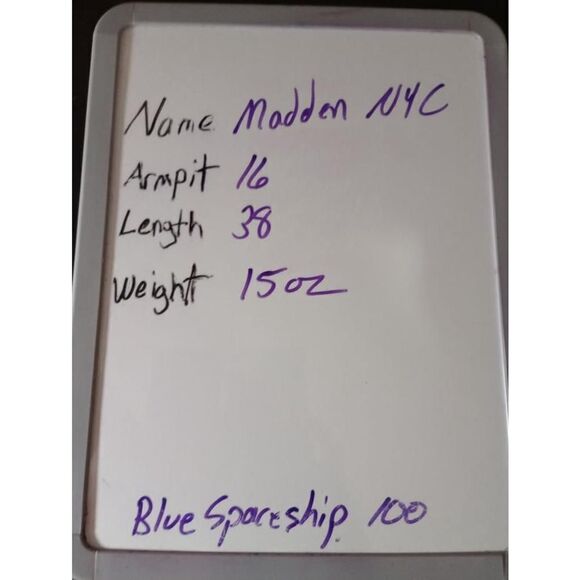 Name Madden NYC
Armpit 16
Length 38
Weight 15oz
Blue Spaceship 100